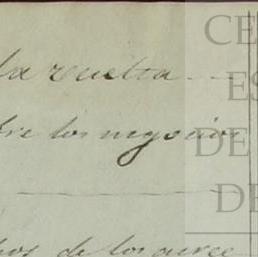 la vuelta
bre los negocios
hos de los
CE
ES
DE
DE